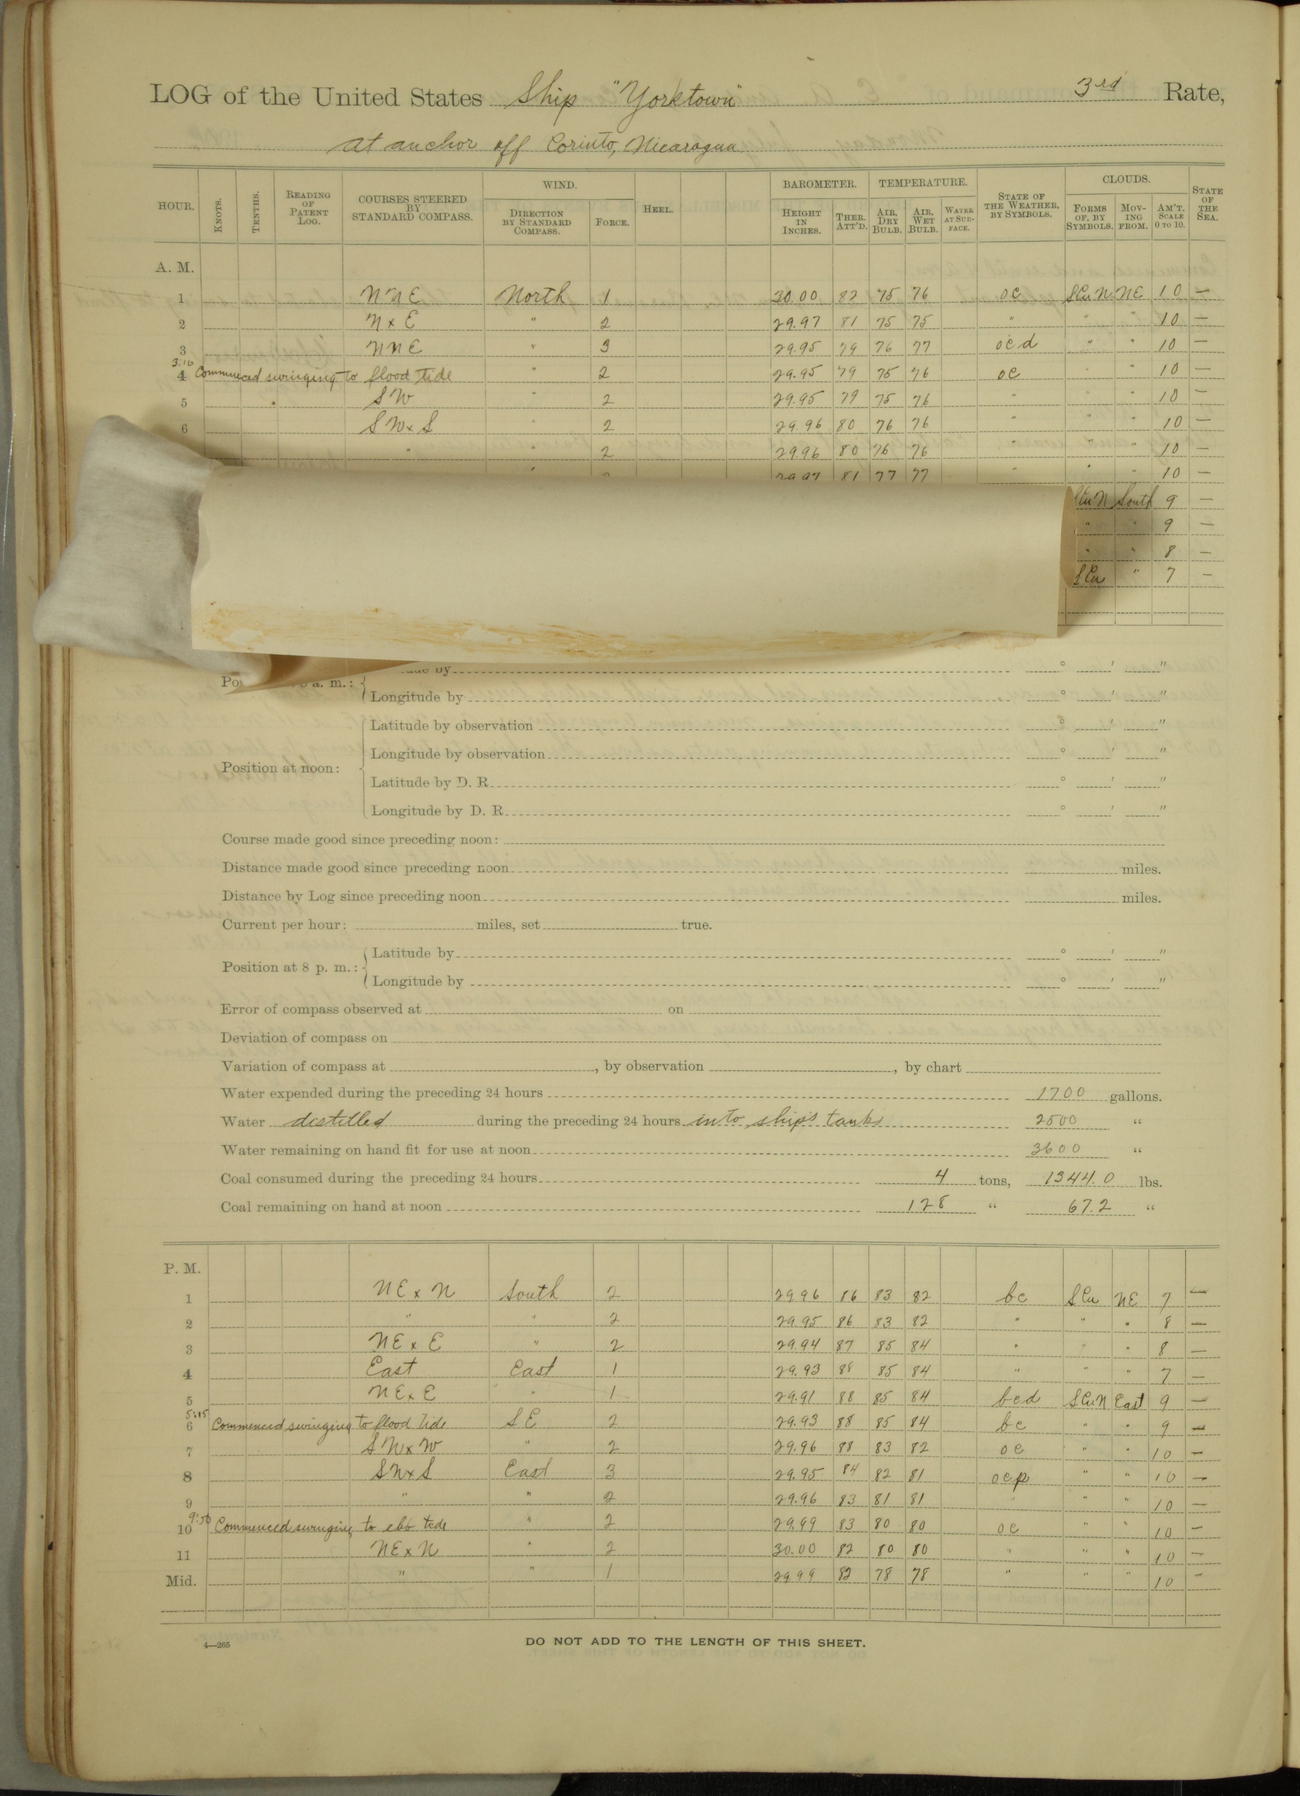 LOG of the United States Ship "Yorktown" 3rd Rate,
at anchor off Corinto, Nicaragua
HOUR. KNOTS. TENTHS. READING OF PATENT LOG. COURSES STEERED BY STANDARD COMPASS. WIND. DIRECTION BY STANDARD COMPASS. FORCE. HEEL. BAROMETER. HEIGHT IN INCHES. THER. ATT'D. TEMPERATURE. AIR, DRY BULB. AIR, WET BULB. WATER AT SURFACE. STATE OF THE WEATHER, BY SYMBOLS. CLOUDS. FORMS OF, BY SYMBOLS. MOVING FROM. AM'T. SCALE 0 TO 10. STATE OF THE SEA.
A. M.
1 NNE North 1 30.00 82 75 76 oc SCuN NE 10 —
2 N x E " 2 29.97 81 75 75 " " " 10 —
3 NNE " 3 29.95 79 76 77 ocd " " 10 —
3.10
4 Commenced swinging to flood tide " 2 29.95 79 75 76 oc " " 10 —
5 SW " 2 29.95 79 75 76 " " " 10 —
6 SW x S " 2 29.96 80 76 76 " " " 10 —
" " 2 29.96 80 76 76 " " " 10 —
29.97 81 77 77 " " " 10 —
South 9 —
" " 9 —
" " 8 —
SCu " 7 —
a. m.: by
Longitude by ° ' "
Position at noon: Latitude by observation ° ' "
Longitude by observation ° ' "
Latitude by D. R. ° ' "
Longitude by D. R. ° ' "
Course made good since preceding noon:
Distance made good since preceding noon miles.
Distance by Log since preceding noon miles.
Current per hour: miles, set true.
Position at 8 p. m.: Latitude by ° ' "
Longitude by ° ' "
Error of compass observed at on
Deviation of compass on
Variation of compass at , by observation , by chart
Water expended during the preceding 24 hours 1700 gallons.
Water distilled during the preceding 24 hours into ship's tanks 2500 "
Water remaining on hand fit for use at noon 3600 "
Coal consumed during the preceding 24 hours 4 tons, 1344.0 lbs.
Coal remaining on hand at noon 128 " 67.2 "
P. M.
1 NE x N South 2 29.96 86 83 82 bc SCu NE 7 —
2 " " 2 29.95 86 83 82 " " " 8 —
3 NE x E " 2 29.94 87 85 84 " " " 8 —
4 East East 1 29.93 88 85 84 " " " 7 —
5 NE x E " 1 29.91 88 85 84 bcd SCuN East 9 —
5:15
6 Commenced swinging to flood tide SE 2 29.93 88 85 84 bc " " 9 —
7 SW x W " 2 29.96 88 83 82 oc " " 10 —
8 SW x S East 3 29.95 84 82 81 ocp " " 10 —
9 " " 2 29.96 83 81 81 " " " 10 —
9:50
10 Commenced swinging to ebb tide " 2 29.99 83 80 80 oc " " 10 —
11 NE x N " 2 30.00 82 80 80 " " " 10 —
Mid. " " 1 29.99 82 78 78 " " " 10 —
4—265
DO NOT ADD TO THE LENGTH OF THIS SHEET.